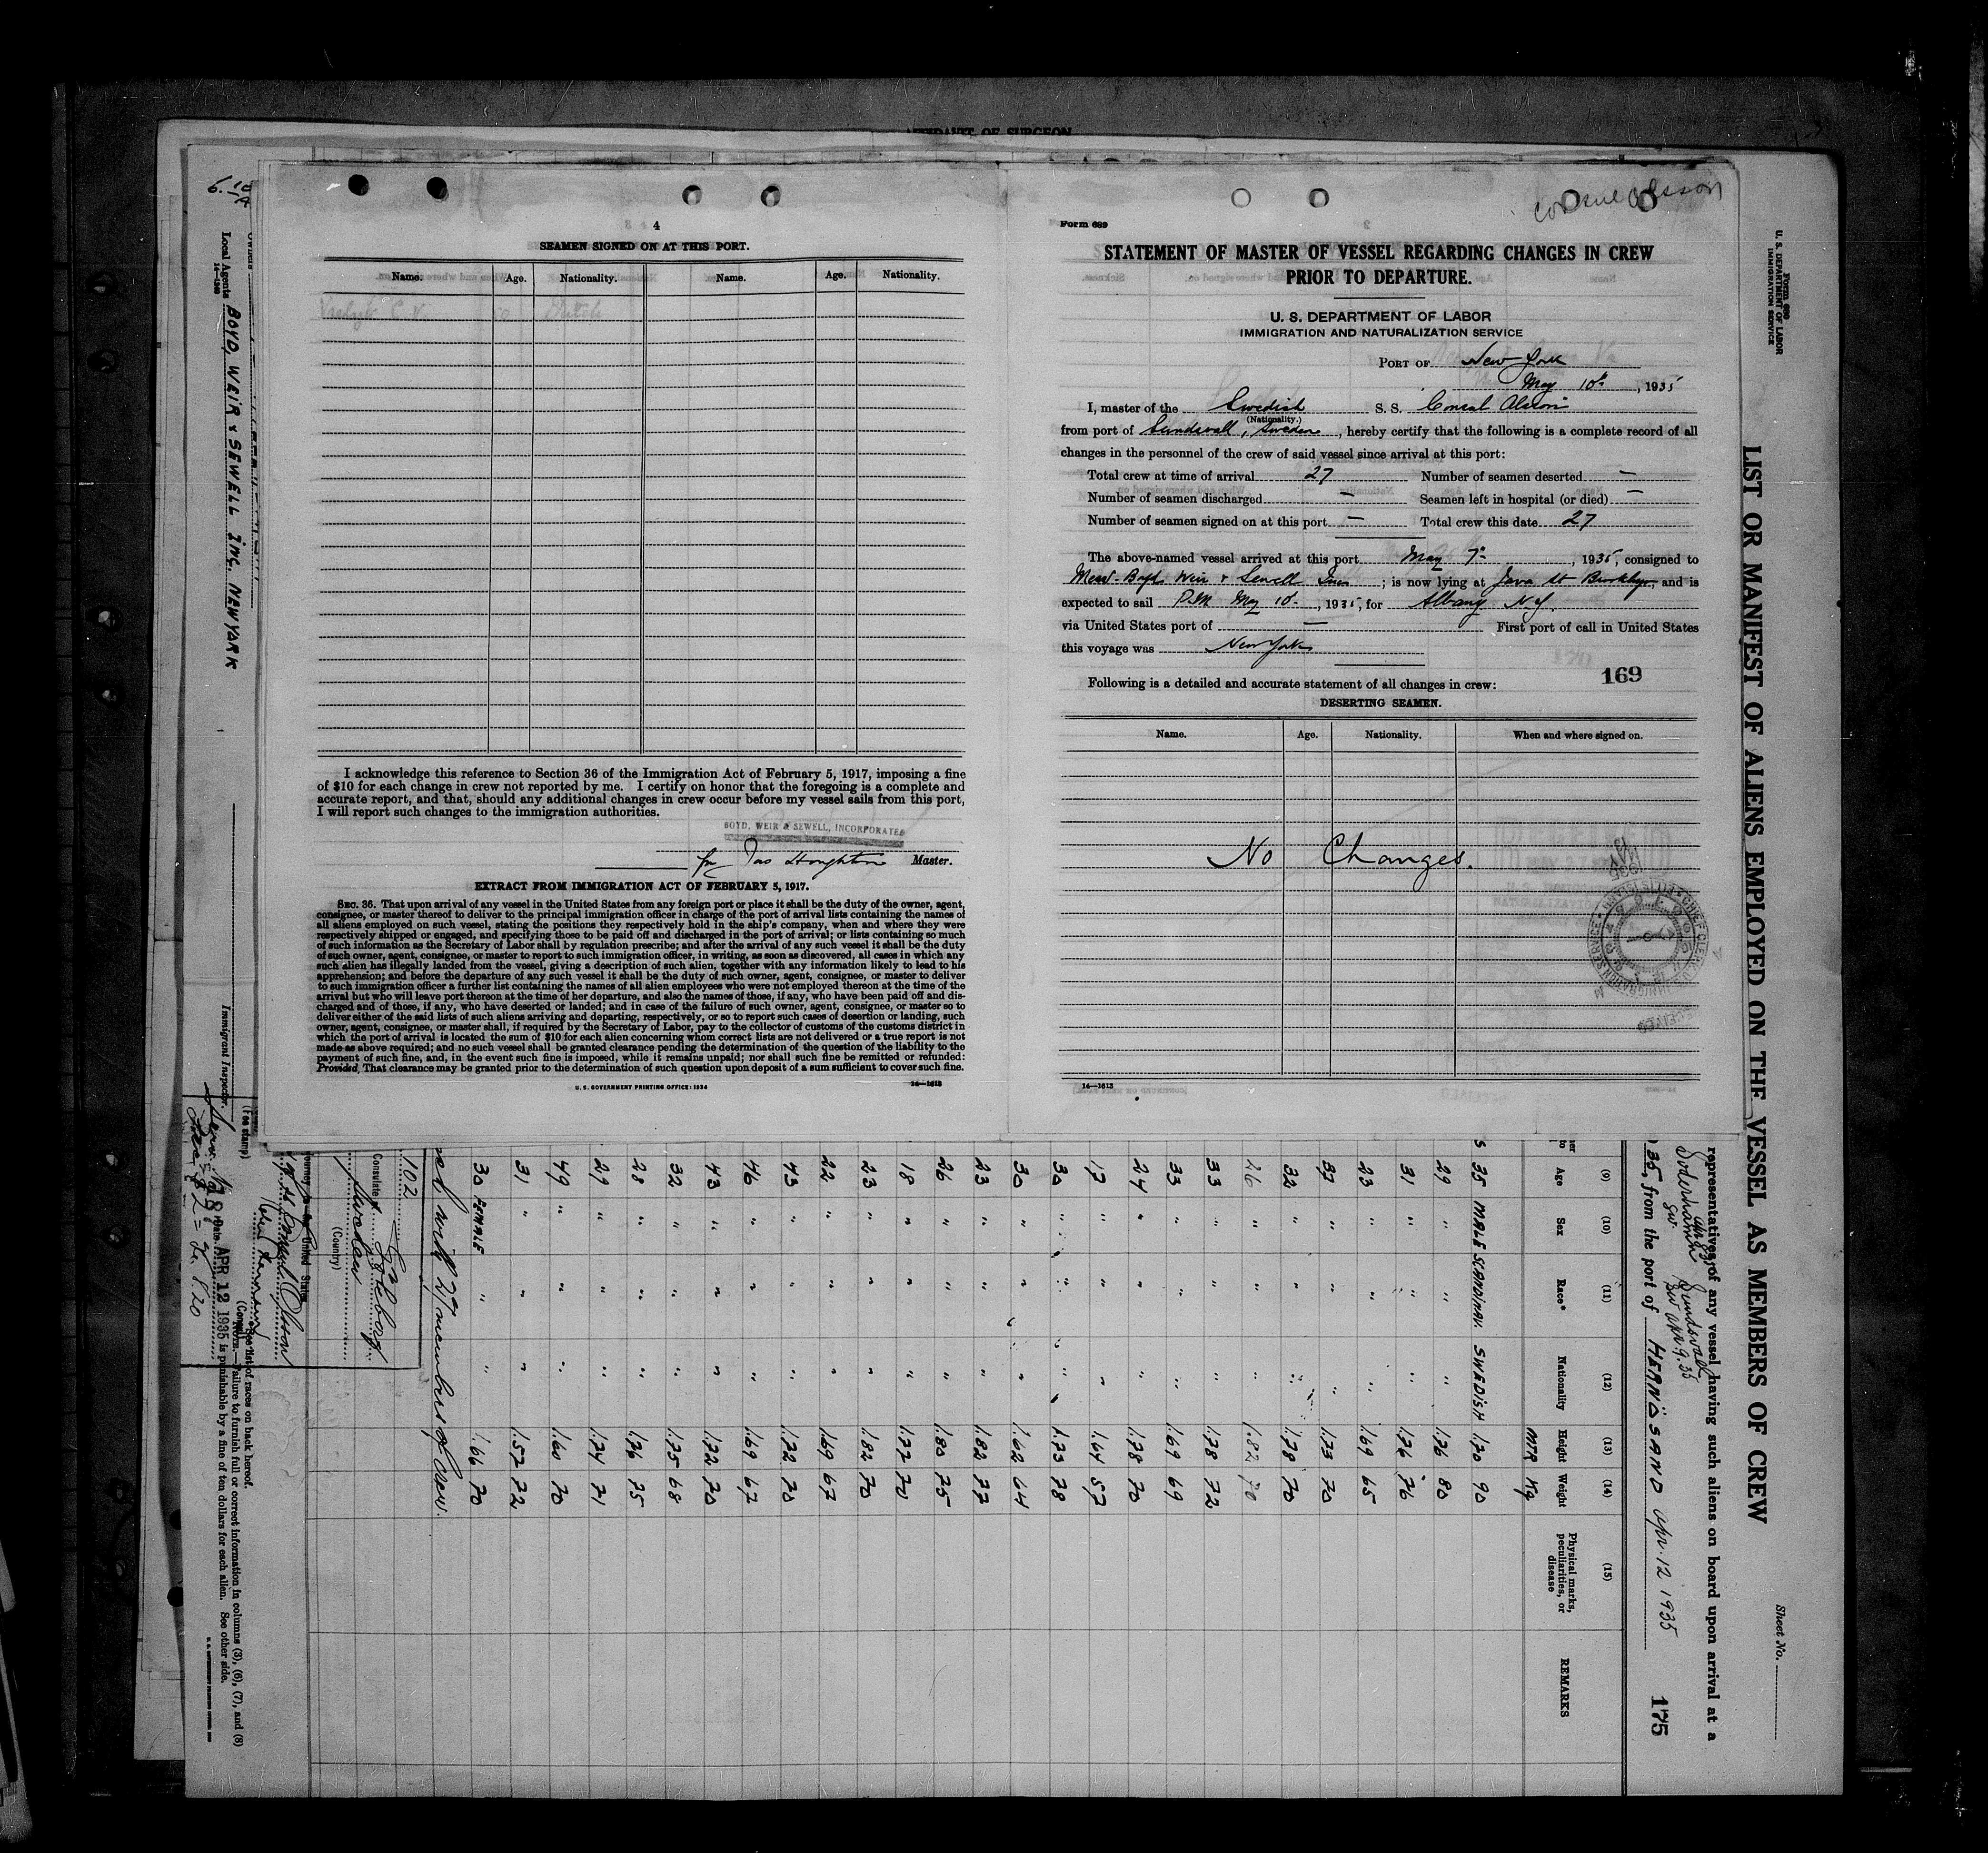 AFFIDAVIT OF SURGEON
4
SEAMEN SIGNED ON AT THIS PORT.
Name. Age. Nationality. Name. Age. Nationality.
I acknowledge this reference to Section 36 of the Immigration Act of February 5, 1917, imposing a fine
of $10 for each change in crew not reported by me. I certify on honor that the foregoing is a complete and
accurate report, and that, should any additional changes in crew occur before my vessel sails from this port,
I will report such changes to the immigration authorities.
BOYD, WEIR & SEWELL, INCORPORATED
for Jas Houghton Master.
EXTRACT FROM IMMIGRATION ACT OF FEBRUARY 5, 1917.
SEC. 36. That upon arrival of any vessel in the United States from any foreign port or place it shall be the duty of the owner, agent,
consignee, or master thereof to deliver to the principal immigration officer in charge of the port of arrival lists containing the names of
all aliens employed on such vessel, stating the positions they respectively hold in the ship's company, when and where they were
respectively shipped or engaged, and specifying those to be paid off and discharged in the port of arrival; or lists containing so much
of such information as the Secretary of Labor shall by regulation prescribe; and after the arrival of any such vessel it shall be the duty
of such owner, agent, consignee, or master to report to such immigration officer, in writing, as soon as discovered, all cases in which any
such alien has illegally landed from the vessel, giving a description of such alien, together with any information likely to lead to his
apprehension; and before the departure of any such vessel it shall be the duty of such owner, agent, consignee, or master to deliver
to such immigration officer a further list containing the names of all alien employees who were not employed thereon at the time of the
arrival but who will leave port thereon at the time of her departure, and also the names of those, if any, who have been paid off and dis-
charged and of those, if any, who have deserted or landed; and in case of the failure of such owner, agent, consignee, or master so to
deliver either of the said lists of such aliens arriving and departing, respectively, or so to report such cases of desertion or landing, such
owner, agent, consignee, or master shall, if required by the Secretary of Labor, pay to the collector of customs of the customs district in
which the port of arrival is located the sum of $10 for each alien concerning whom correct lists are not delivered or a true report is not
made as above required; and no such vessel shall be granted clearance pending the determination of the question of the liability to the
payment of such fine, and, in the event such fine is imposed, while it remains unpaid; nor shall such fine be remitted or refunded:
Provided, That clearance may be granted prior to the determination of such question upon deposit of a sum sufficient to cover such fine.
U. S. GOVERNMENT PRINTING OFFICE: 1934 14—1613
Consul Olsson
Form 689
STATEMENT OF MASTER OF VESSEL REGARDING CHANGES IN CREW
PRIOR TO DEPARTURE.
U. S. DEPARTMENT OF LABOR
IMMIGRATION AND NATURALIZATION SERVICE
PORT OF New York
May 10th, 1935
I, master of the Swedish S. S. Consul Olsson
(Nationality.)
from port of Sundsvall, Sweden, hereby certify that the following is a complete record of all
changes in the personnel of the crew of said vessel since arrival at this port:
Total crew at time of arrival 27 Number of seamen deserted —
Number of seamen discharged — Seamen left in hospital (or died) —
Number of seamen signed on at this port — Total crew this date 27
The above-named vessel arrived at this port May 7th, 1935, consigned to
Messrs Boyd Weir & Sewell Inc; is now lying at Java St Brooklyn, and is
expected to sail P.M. May 10th, 1935, for Albany N.Y.
via United States port of — First port of call in United States
this voyage was New York
169
Following is a detailed and accurate statement of all changes in crew:
DESERTING SEAMEN.
Name. Age. Nationality. When and where signed on.
No Changes.
14—1613
Form 689
U. S. DEPARTMENT OF LABOR
IMMIGRATION SERVICE
LIST OR MANIFEST OF ALIENS EMPLOYED ON THE VESSEL AS MEMBERS OF CREW
Sheet No.
representatives of any vessel having such aliens on board upon arrival at a
Soderhamn Sundsvall
apr. 9. 35
35, from the port of HERNÖSAND apr. 12 1935
175
(9) (10) (11) (12) (13) (14) (15)
Age Sex Race* Nationality Height Weight Physical marks, peculiarities, or disease REMARKS
MTR Kg
35 MALE SCANDINAV. SWEDISH 1.70 90
29 " " " 1.76 80
31 " " " 1.76 76
23 " " " 1.69 65
37 " " " 1.73 70
32 " " " 1.78 70
26 " " " 1.82 70
33 " " " 1.78 72
33 " " " 1.69 69
24 " " " 1.78 70
17 " " " 1.64 57
30 " " " 1.73 78
30 " " " 1.62 64
23 " " " 1.82 77
26 " " " 1.80 75
18 " " " 1.77 70
23 " " " 1.82 70
22 " " " 1.69 67
43 " " " 1.72 70
46 " " " 1.69 67
43 " " " 1.72 70
32 " " " 1.75 68
28 " " " 1.76 75
29 " " " 1.74 71
49 " " " 1.60 70
31 " " " 1.57 72
30 FEMALE " " 1.66 70
with 27 members of crew.
102
Consulate
Göteborg
Sweden
(Country)
Journey to the United States
Consul Olsson
(Consul)
(Fee stamp)
Serv. No. 87 Date APR 12 1935
*See list of races on back hereof.
NOTE.—Failure to furnish full or correct information in columns (3), (6), (7), and (8)
is punishable by a fine of ten dollars for each alien. See other side.
Immigrant Inspector.
Owners
Local Agents BOYD, WEIR & SEWELL INC. NEW YORK